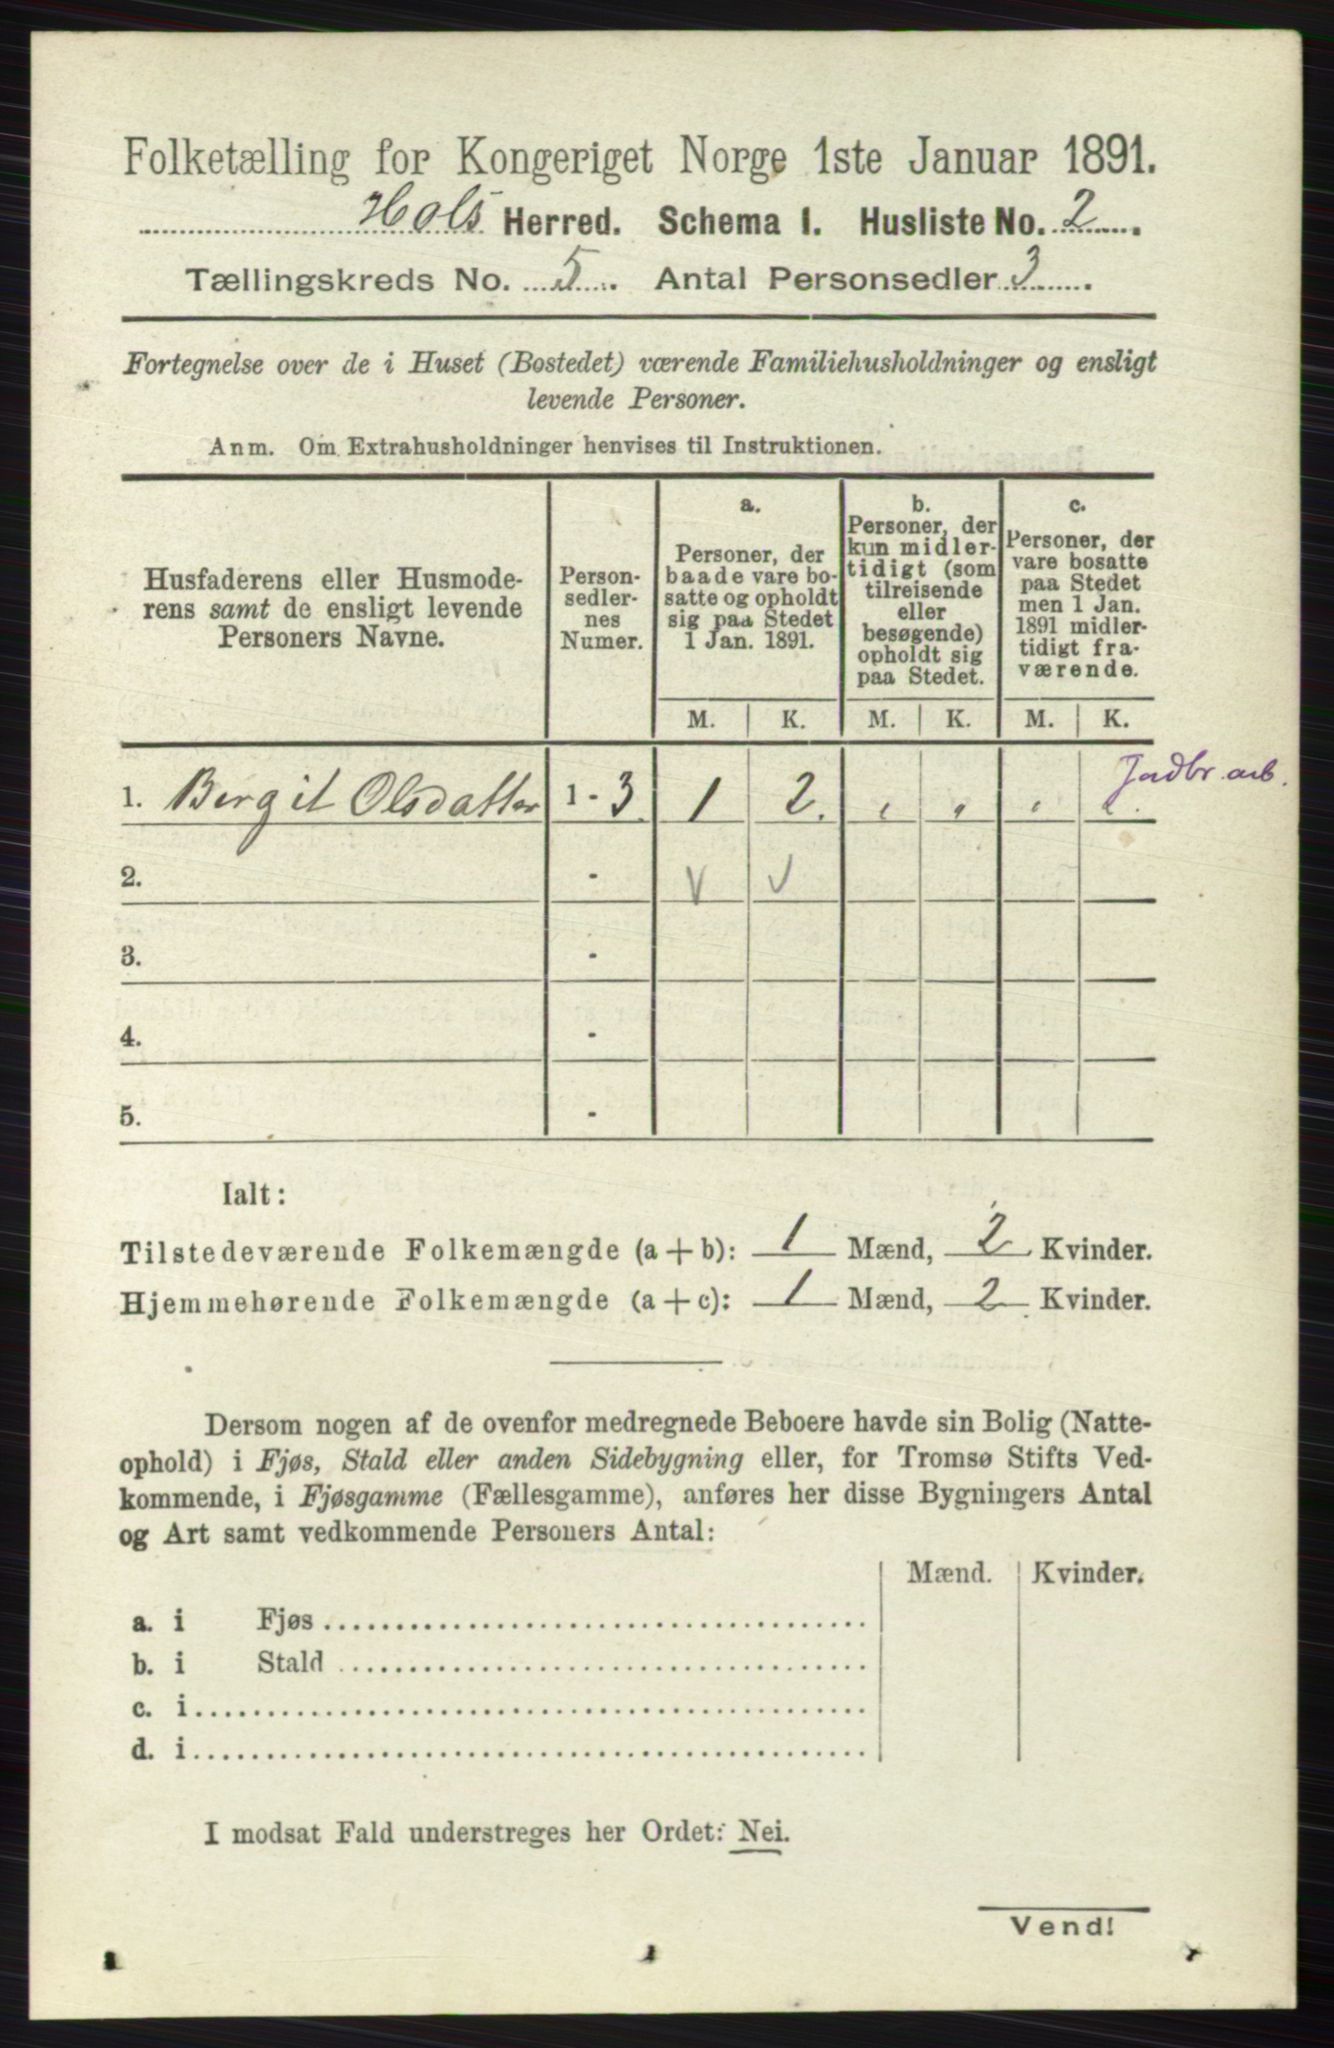 Folketælling for Kongeriget Norge 1ste Januar 1891.
Hols Herred. Schema 1. Husliste No. 2.
Tællingskreds No. 5. Antal Personsedler 3.
Fortegnelse over de i Huset (Bostedet) værende Familiehusholdninger og ensligt
levende Personer.
Anm. Om Extrahusholdninger henvises til Instruktionen.
Husfaderens eller Husmode-
rens samt de ensligt levende
Personers Navne.
Person-
sedler-
nes
Numer.
a.
Personer, der
baade vare bo-
satte og opholdt
sig paa Stedet
1 Jan. 1891.
b.
Personer, der
kun midler-
tidigt (som
tilreisende
eller
besøgende)
opholdt sig
paa Stedet.
c.
Personer, der
vare bosatte
paa Stedet
men 1 Jan.
1891 midler-
tidigt fra-
værende.
M. K. M. K. M. K.
Jadbr. arb.
1. Bergit Olsdatter 1 - 3 1 2. " " " "
2. - V V
3. -
4. -
5. -
Ialt:
Tilstedeværende Folkemængde (a + b): 1 Mænd, 2 Kvinder.
Hjemmehørende Folkemængde (a + c): 1 Mænd, 2 Kvinder.
Dersom nogen af de ovenfor medregnede Beboere havde sin Bolig (Natte-
ophold) i Fjøs, Stald eller anden Sidebygning eller, for Tromsø Stifts Ved-
kommende, i Fjøsgamme (Fællesgamme), anføres her disse Bygningers Antal
og Art samt vedkommende Personers Antal:
Mænd. Kvinder.
a. i Fjøs
b. i Stald
c. i
d. i
I modsat Fald understreges her Ordet: Nei.
Vend!